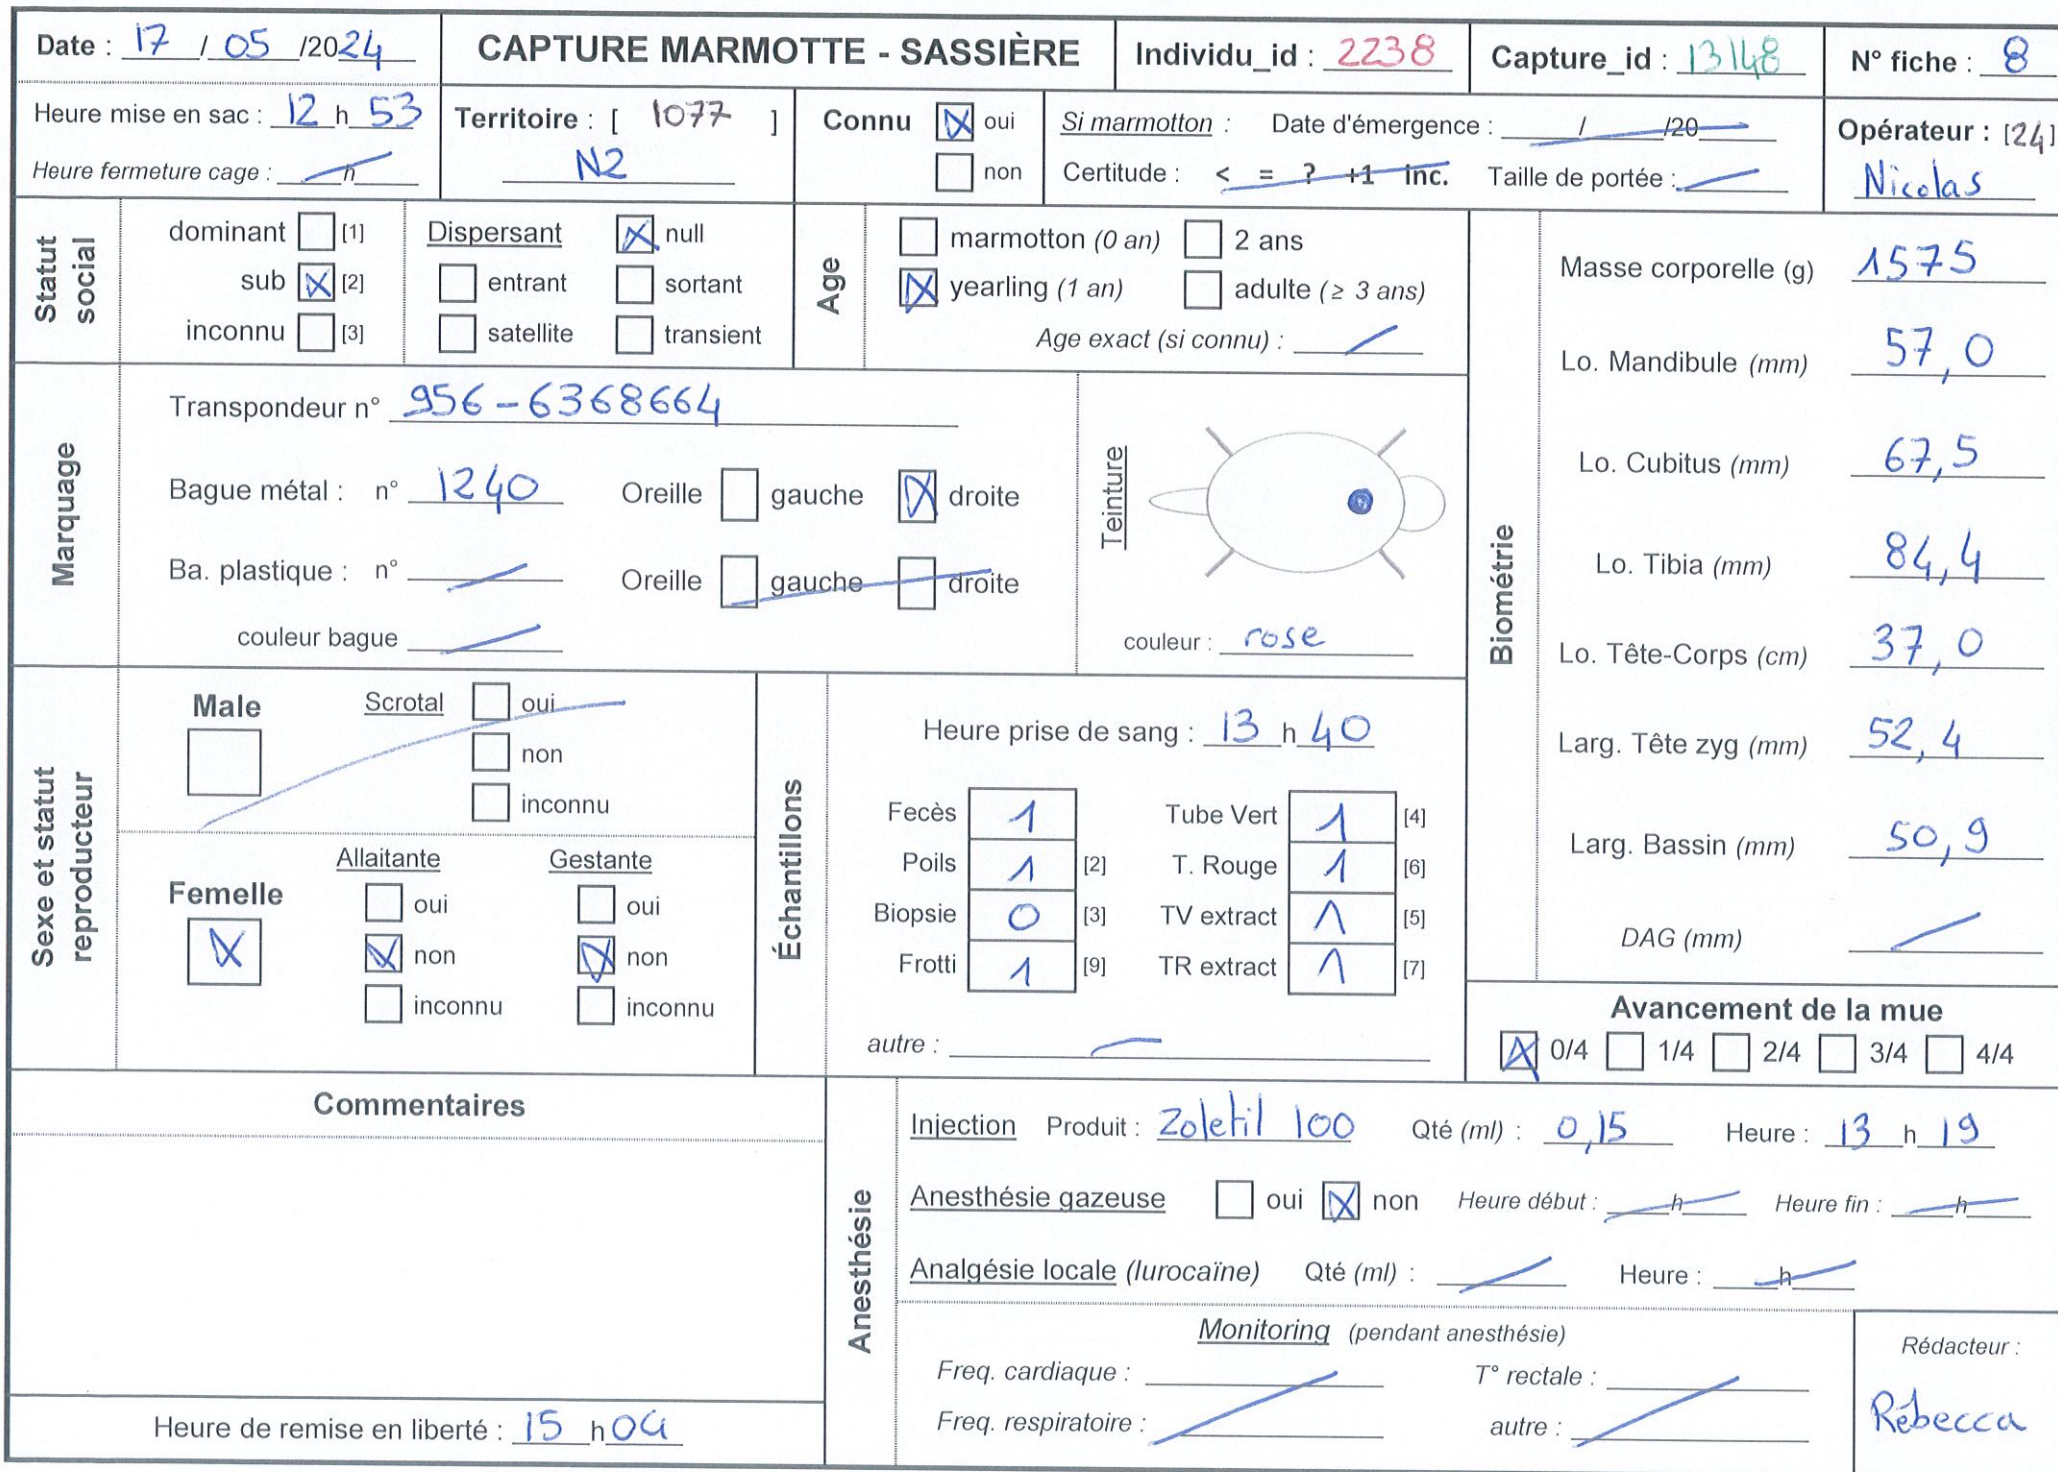 Date : 17 / 05 /2024
CAPTURE MARMOTTE - SASSIÈRE
Individu_id : 2238
Capture_id : 13148
N° fiche : 8
Heure mise en sac : 12 h 53
Heure fermeture cage : h
Territoire : [ 1077 ]
N2
Connu
oui
non
Si marmotton : Date d'émergence : / /20
Certitude : < = ? +1 inc. Taille de portée :
Opérateur : [24]
Nicolas
Statut social
dominant [1]
sub [2]
inconnu [3]
Dispersant null
entrant sortant
satellite transient
Age
marmotton (0 an) 2 ans
yearling (1 an) adulte (≥ 3 ans)
Age exact (si connu) :
Marquage
Transpondeur n° 956-6368664
Bague métal : n° 1240 Oreille gauche droite
Ba. plastique : n° Oreille gauche droite
couleur bague
Teinture
couleur : rose
Biométrie
Masse corporelle (g) 1575
Lo. Mandibule (mm) 57,0
Lo. Cubitus (mm) 67,5
Lo. Tibia (mm) 84,4
Lo. Tête-Corps (cm) 37,0
Larg. Tête zyg (mm) 52,4
Larg. Bassin (mm) 50,9
DAG (mm)
Sexe et statut reproducteur
Male Scrotal oui
non
inconnu
Femelle
Allaitante Gestante
oui oui
non non
inconnu inconnu
Échantillons
Heure prise de sang : 13 h 40
Fecès 1 Tube Vert 1 [4]
Poils 1 [2] T. Rouge 1 [6]
Biopsie 0 [3] TV extract 1 [5]
Frotti 1 [9] TR extract 1 [7]
autre :
Avancement de la mue
0/4 1/4 2/4 3/4 4/4
Commentaires
Heure de remise en liberté : 15 h
Anesthésie
Injection Produit : Zoletil 100 Qté (ml) : 0,15 Heure : 13 h 19
Anesthésie gazeuse oui non Heure début : h Heure fin : h
Analgésie locale (lurocaïne) Qté (ml) : Heure : h
Monitoring (pendant anesthésie)
Freq. cardiaque : T° rectale :
Freq. respiratoire : autre :
Rédacteur :
Rébecca